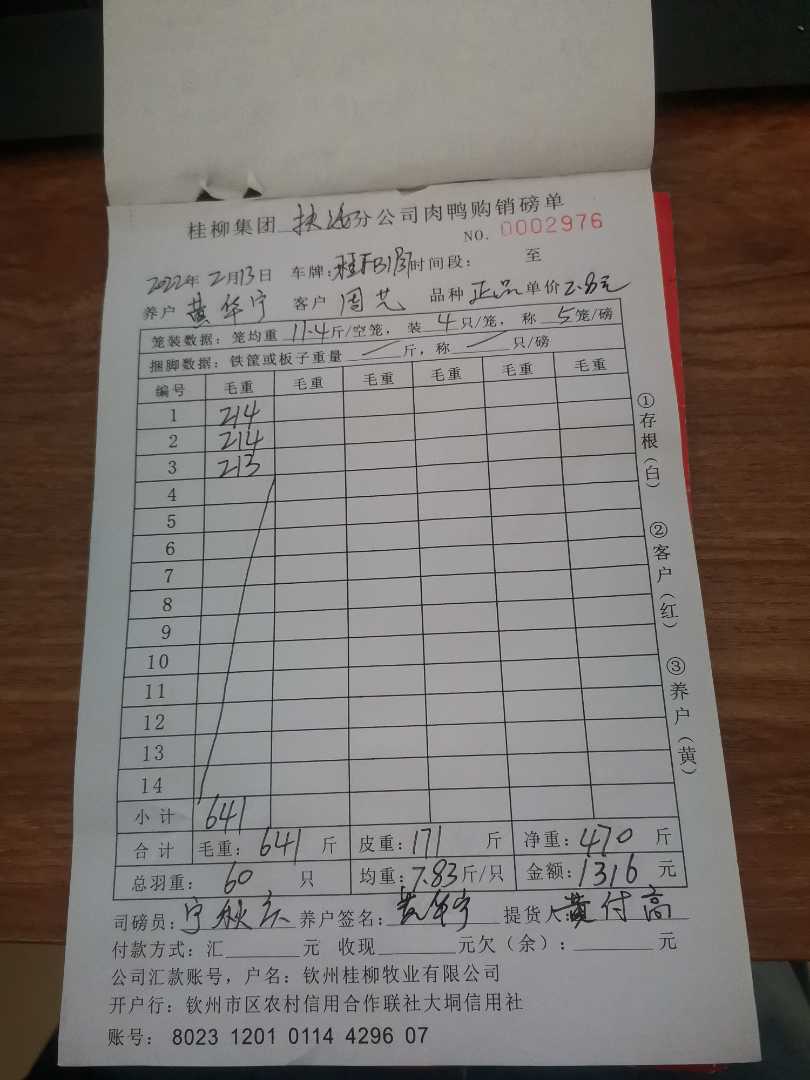 桂柳集团 分公司肉鸭购销磅单
NO. 0002976
2022年 2月13日 车牌: 时间段: 至
养户 黄华宁 客户 周艺 品种 正品 单价 2.8元
笼装数据: 笼均重 11.4 斤/空笼, 装 4 只/笼, 称 5 笼/磅
捆脚数据: 铁筐或板子重量 / 斤, 称 / 只/磅
编号 毛重 毛重 毛重 毛重 毛重 毛重
1 214
2 214
3 213
4
5
6
7
8
9
10
11
12
13
14
小计 641
合计 毛重: 641 斤 皮重: 171 斤 净重: 470 斤
总羽重: 60 只 均重: 7.83 斤/只 金额: 1316 元
司磅员: 宁秋 养户签名: 黄华宁 提货人: 黄付高
付款方式: 汇 元 收现 元欠(余): 元
公司汇款账号, 户名: 钦州桂柳牧业有限公司
开户行: 钦州市区农村信用合作联社大垌信用社
账号: 8023 1201 0114 4296 07
①存根(白) ②客户(红) ③养户(黄)